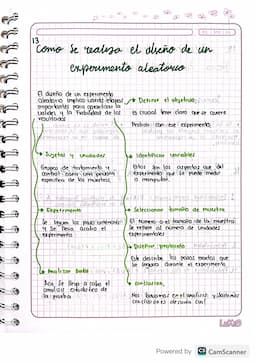 13
Como se realiza el diseño de un
experimento aleatorio
El diseño de un experimento
aleatorio implica varias etapas
importantes para garantizar la
validez y la fiabilidad de los
resultados
Definir el objetivo
Es crucial tener claro que se quiere
Probar con ese experimento
Sujetos y unidades
Grupos de tratamiento y
control como una porción
específica de las muestras
Identificar variables
Estos son los aspectos que del
experimento que se puede medir
o manipular.
Experimento
Se siguen los pasos anteriores
y se lleva acabo el
experimento
Seleccionar tamaño de muestra
El número o el tamaño de la muestra
Se refiere al número de unidades
experimentales
Diseñar protocolo
Este describe los pasos exactos que
se seguirá durante el experimento
Analizar Datos
Aquí se lleva a cabo el
análisis estadístico de
la prueba
Conclusión
Nos basamos en el análisis y
conclusiones de acuerdo con
Powered by CS CamScanner